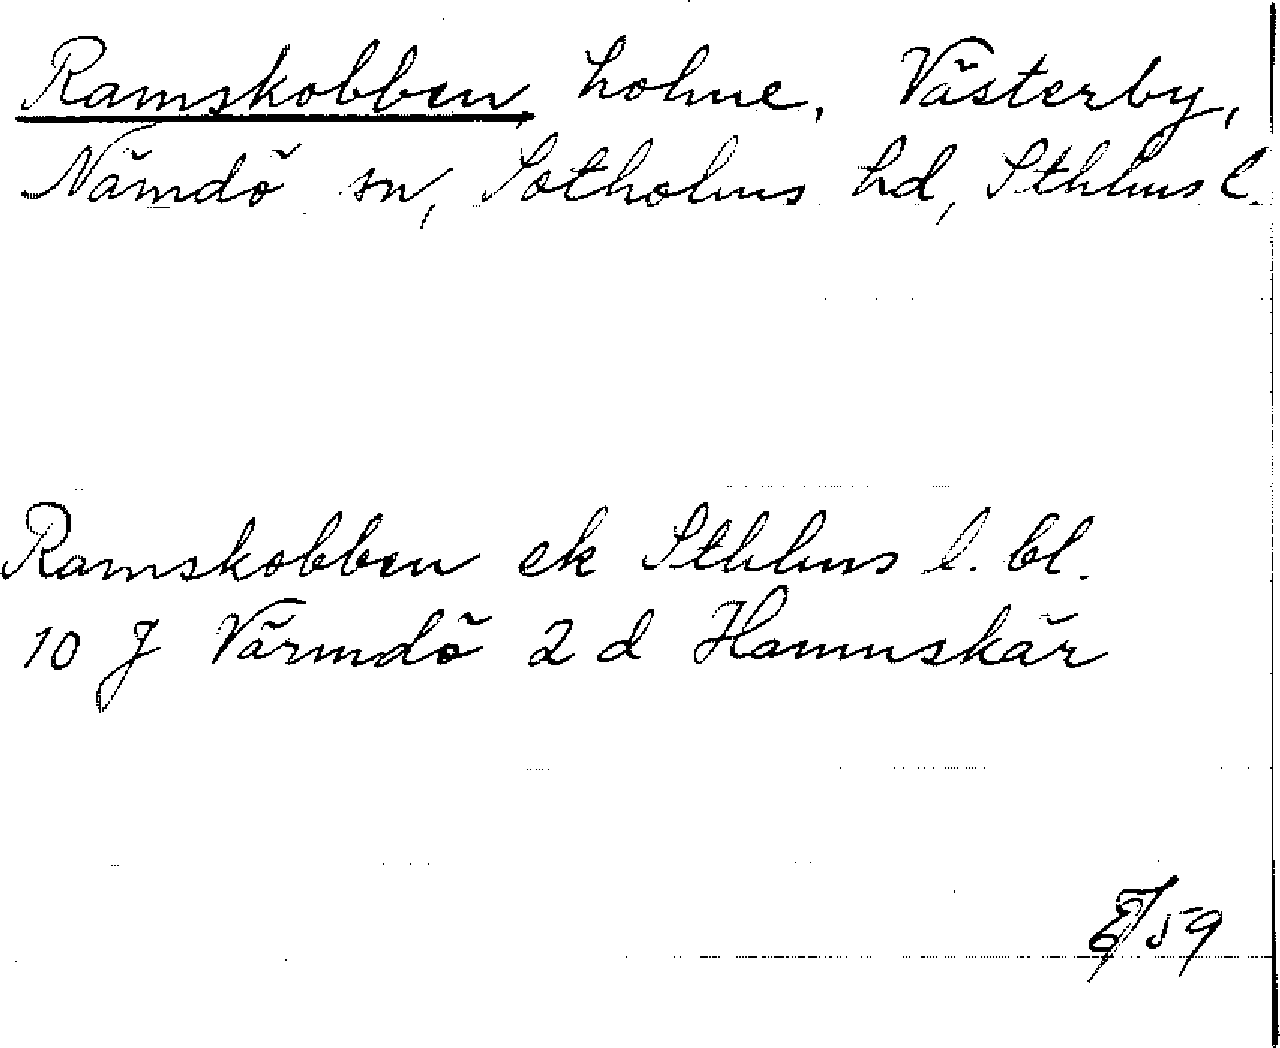 Ramskobben, holme, Västerby,
Nämdö sn, Sotholms hd, Sthlms l.
Ramskobben ek Sthlms l. bl.
10 J Värmdö 2 d Hamnskär
59